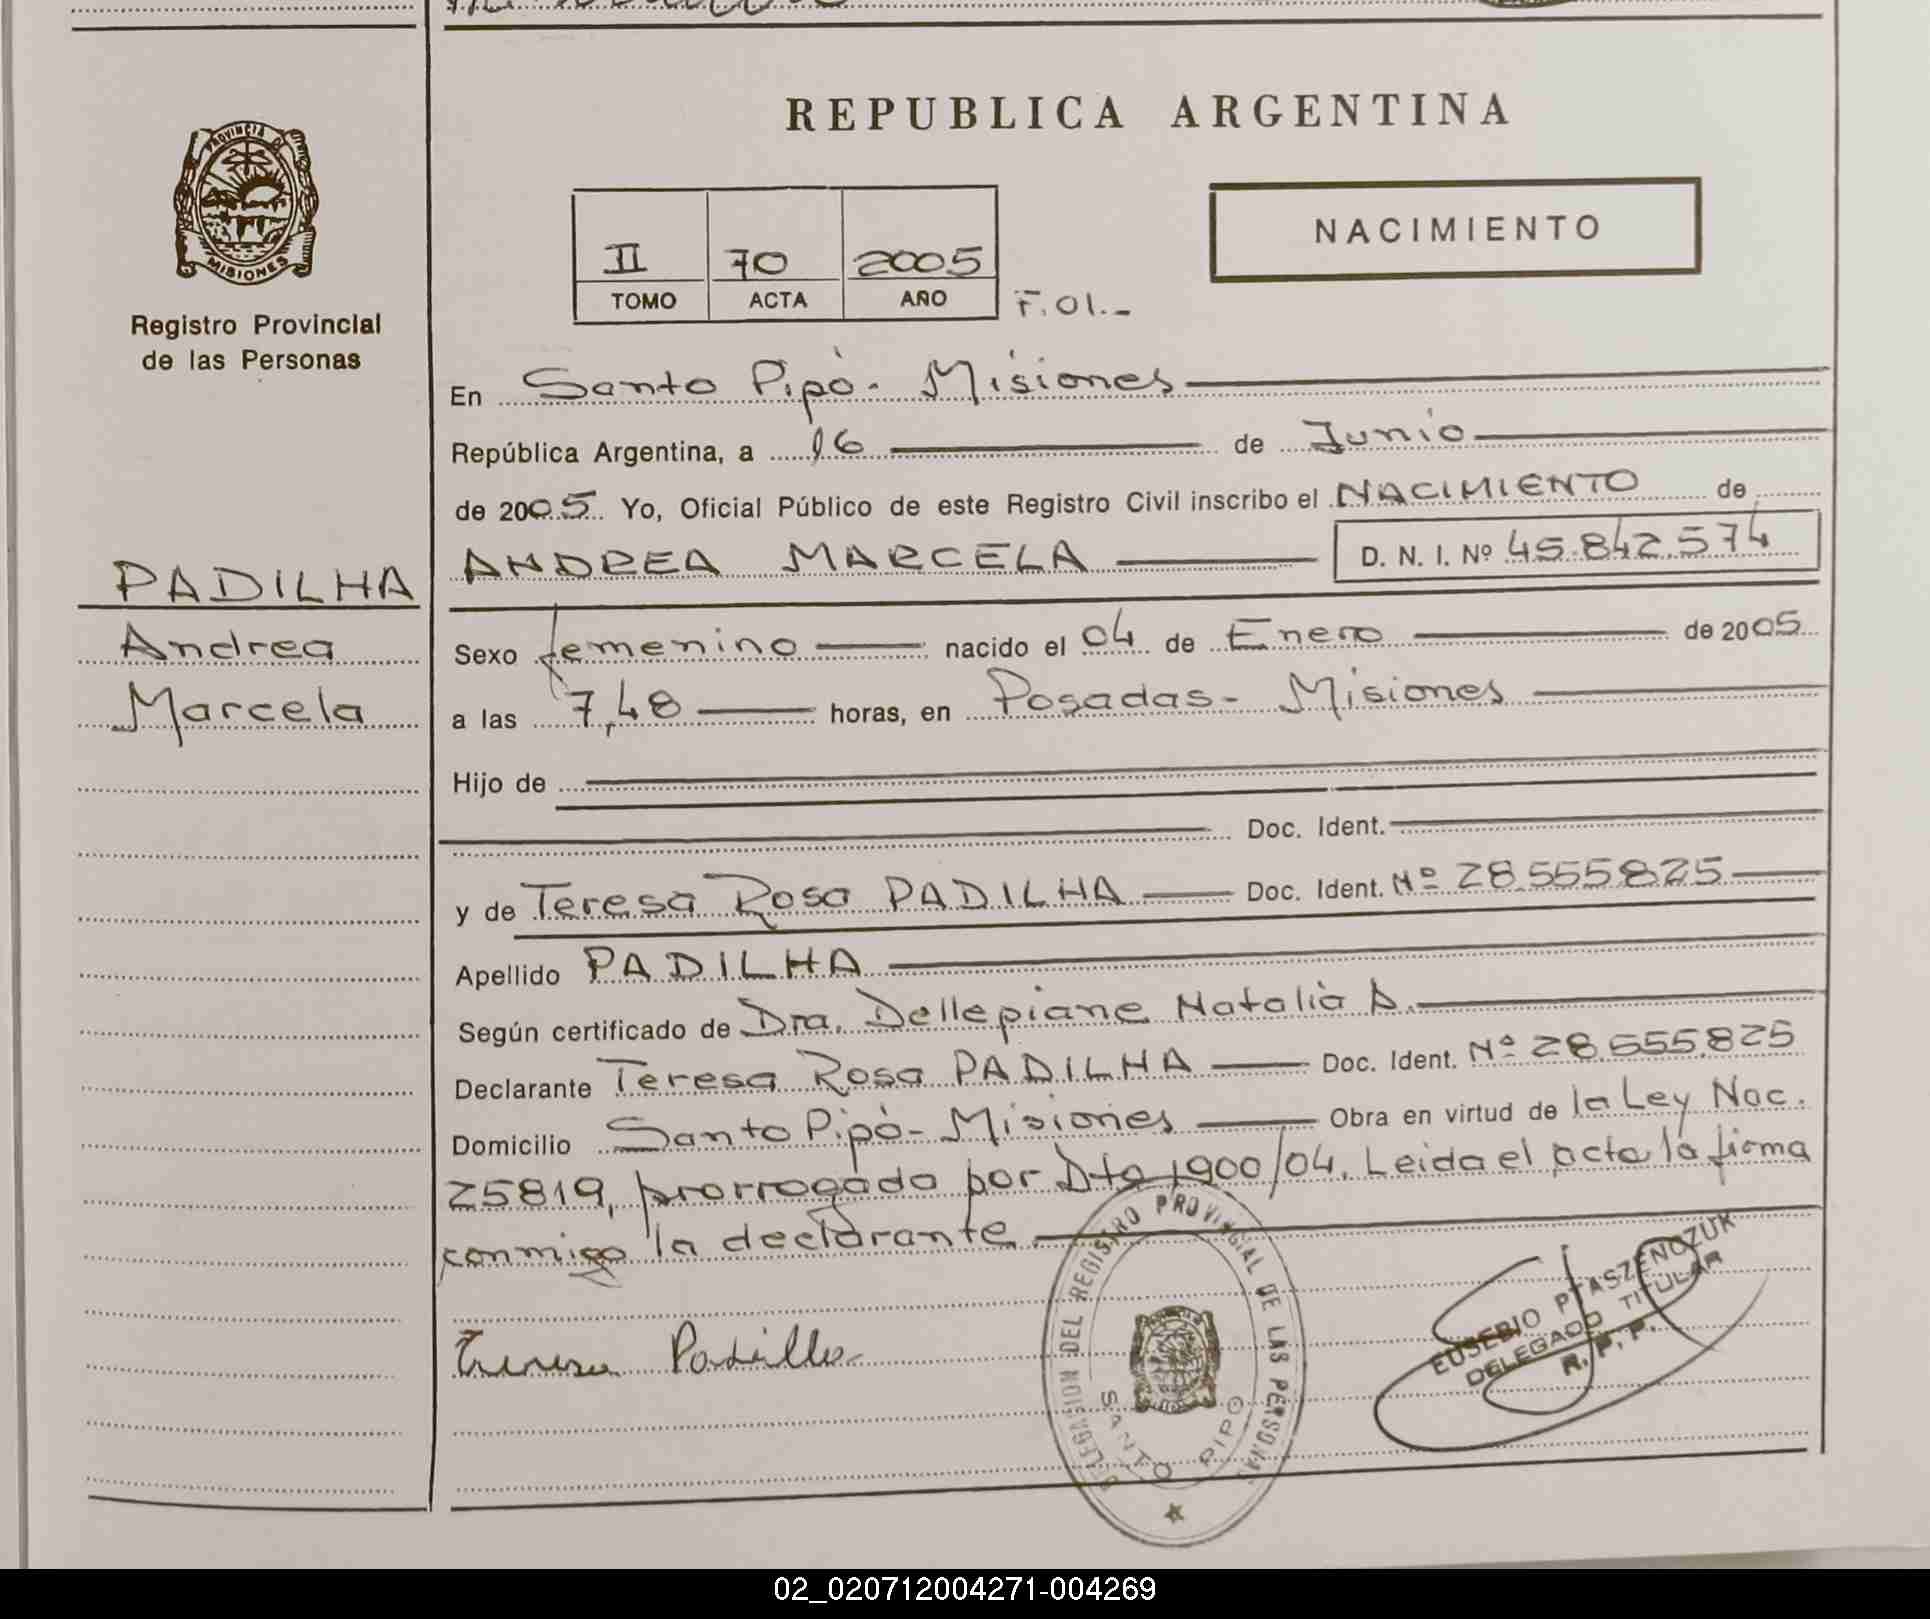 PROVINCIA DE
MISIONES
Registro Provincial
de las Personas
PADILHA
Andrea
Marcela
REPUBLICA ARGENTINA
II 70 2005
TOMO ACTA AÑO F. 01.-
NACIMIENTO
En Santo Pipó - Misiones
República Argentina, a 16 de Junio
de 2005 Yo, Oficial Público de este Registro Civil inscribo el NACIMIENTO de
ANDREA MARCELA D. N. I. Nº 45.842.574
Sexo femenino nacido el 04 de Enero de 2005
a las 7,48 horas, en Posadas - Misiones
Hijo de
Doc. Ident.
y de Teresa Rosa PADILHA Doc. Ident. Nº 28.555.825
Apellido PADILHA
Según certificado de Dra. Dellepiane Natalia A.
Declarante Teresa Rosa PADILHA Doc. Ident. Nº 28.555.825
Domicilio Santo Pipó - Misiones Obra en virtud de la Ley Nac.
25819, prorrogado por Dto 1900/04. Leida el acta la firma
conmigo la declarante
DELEGACION DEL REGISTRO PROVINCIAL DE LAS PERSONAS
SANTO PIPO
EUSEBIO PTASZENCZUK
DELEGADO TITULAR
R. P. P.
02_020712004271-004269